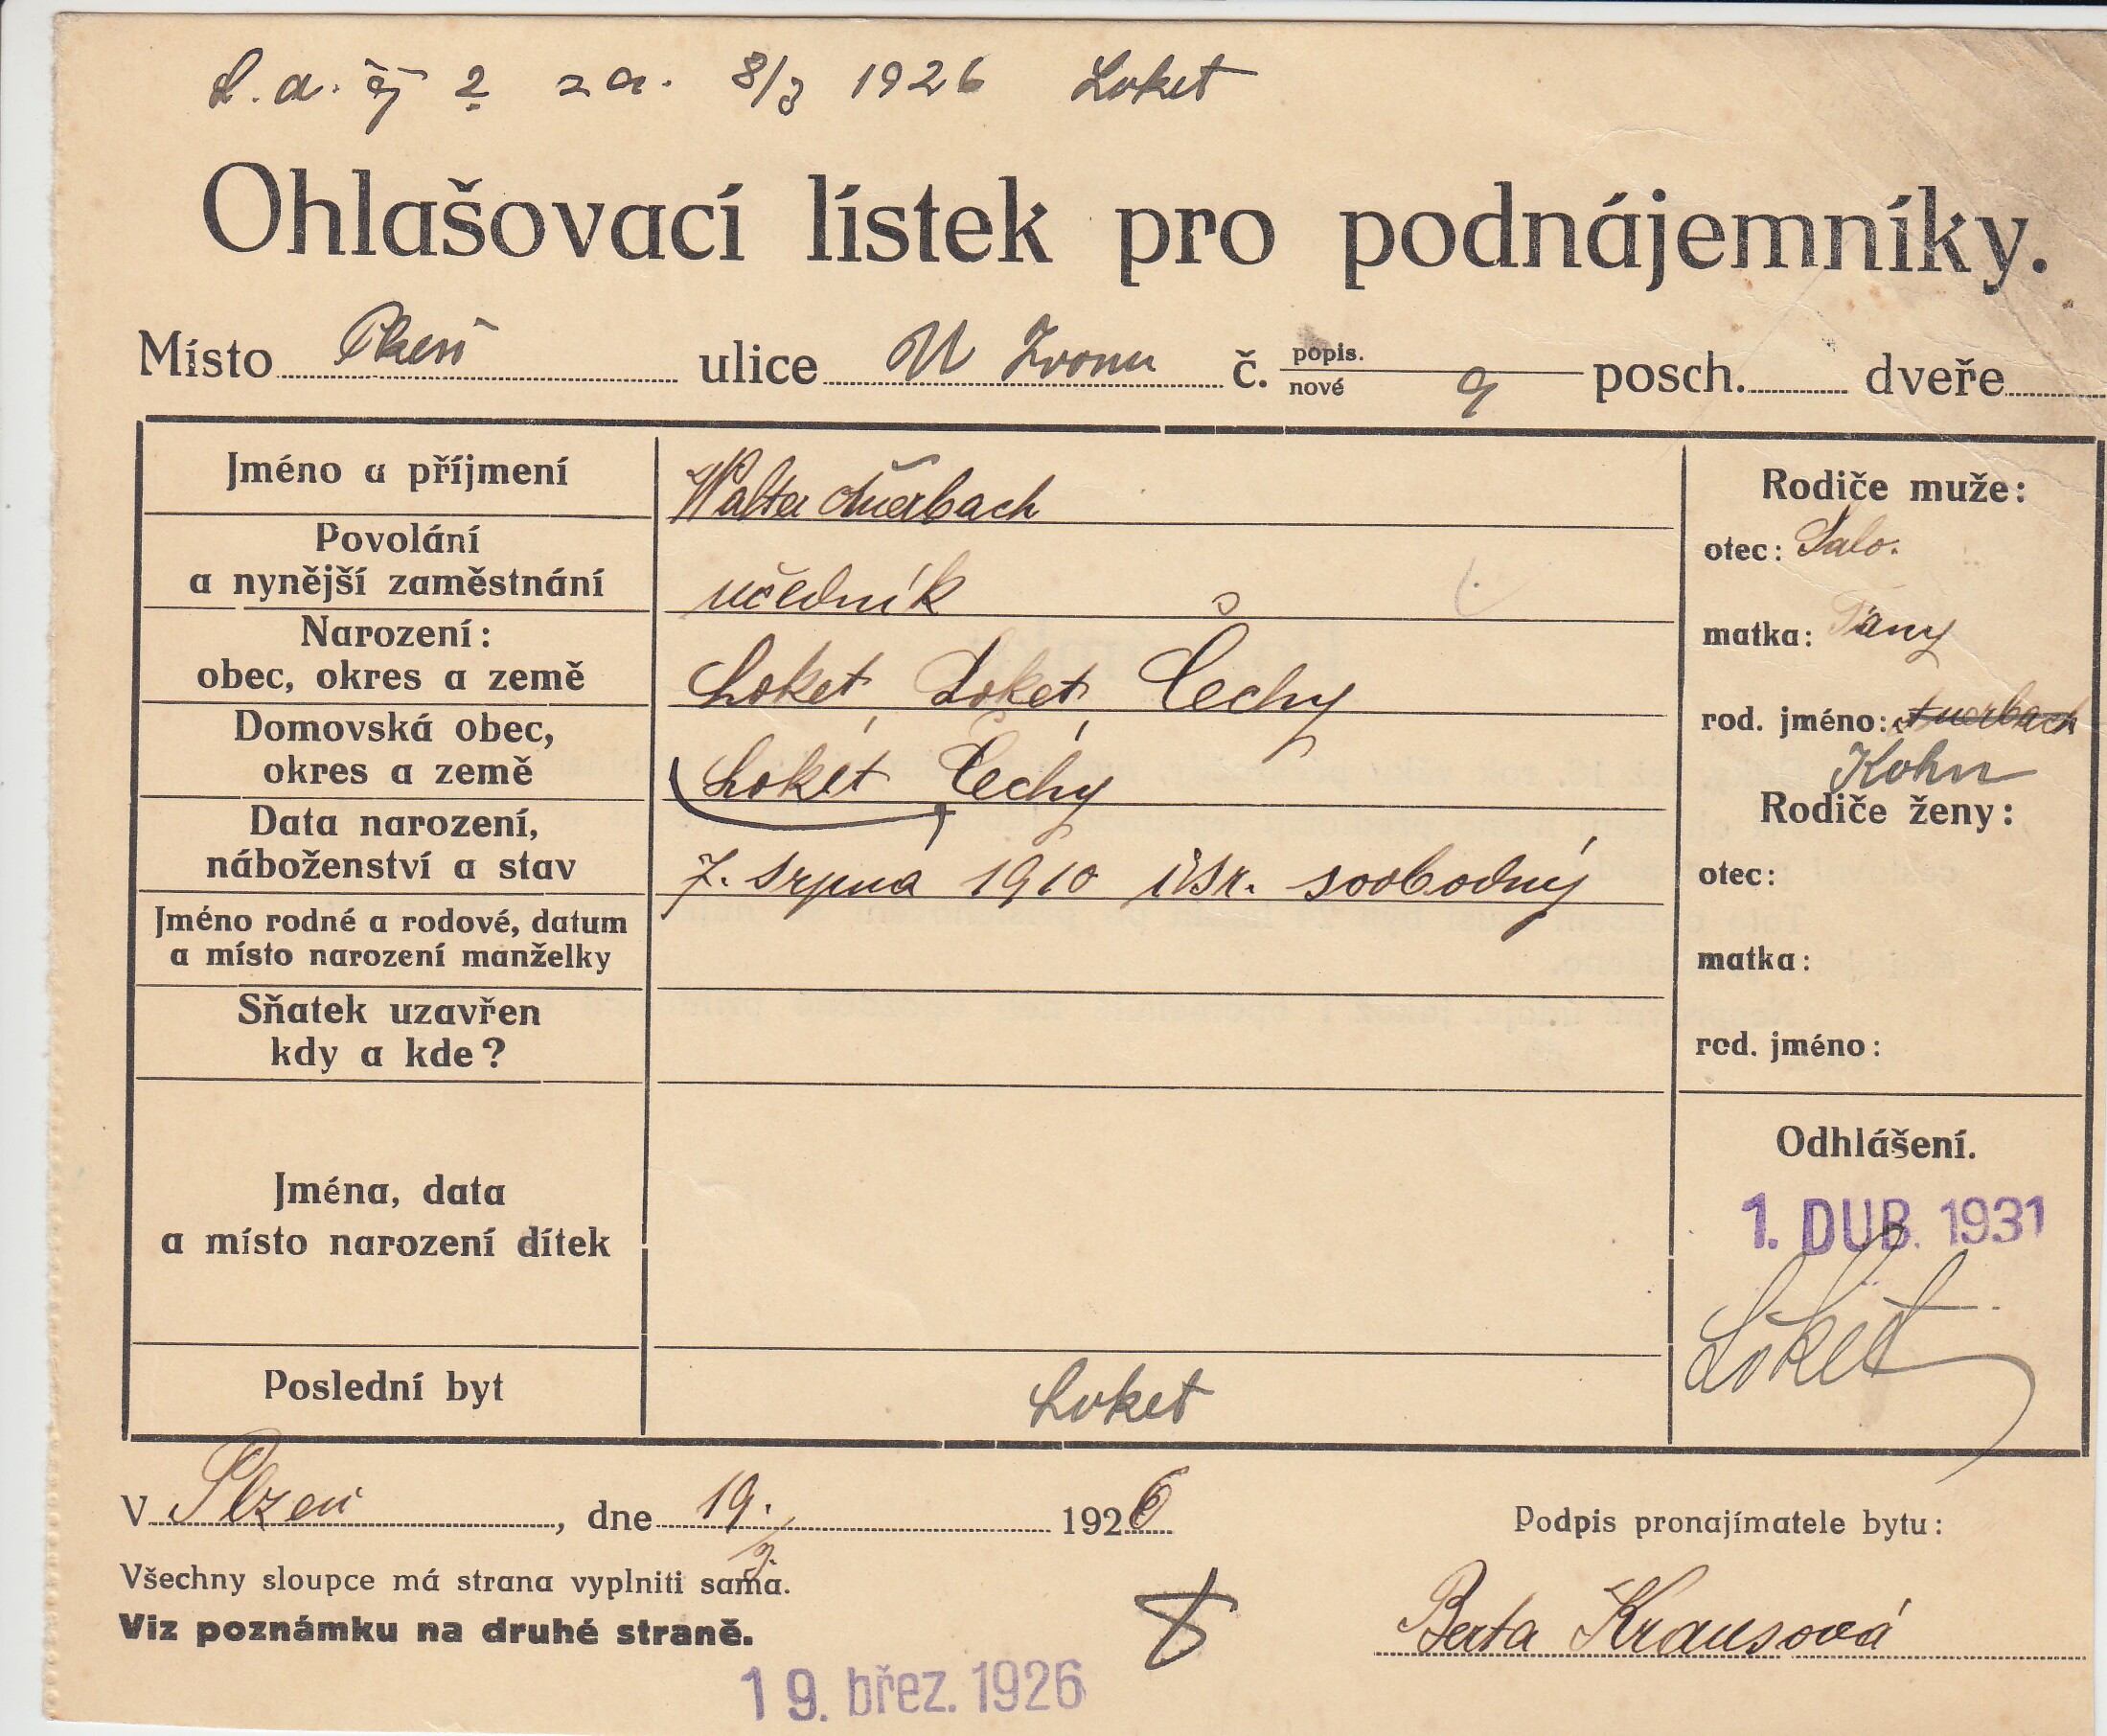 za. 8/3 1926 Loket
Ohlašovací lístek pro podnájemníky.
Místo Plzeň ulice U Zvonu č. popis. nové 9 posch. dveře
Jméno a příjmení Walter Auerbach
Povolání
a nynější zaměstnání učedník
Narození:
obec, okres a země Loket, Loket, Čechy
Domovská obec,
okres a země Loket Čechy
Data narození,
náboženství a stav 7. srpna 1910 isr. svobodný
Jméno rodné a rodové, datum
a místo narození manželky
Sňatek uzavřen
kdy a kde?
Jména, data
a místo narození dítek
Poslední byt Loket
Rodiče muže:
otec: Salo.
matka: Fany
rod. jméno: Auerbach
Kohn
Rodiče ženy:
otec:
matka:
rod. jméno:
Odhlášení.
1. DUB. 1931
Loket
V Plzeň, dne 19./3. 1926
Podpis pronajímatele bytu:
Všechny sloupce má strana vyplniti sama.
Viz poznámku na druhé straně.
Berta Krausová
19. břez. 1926